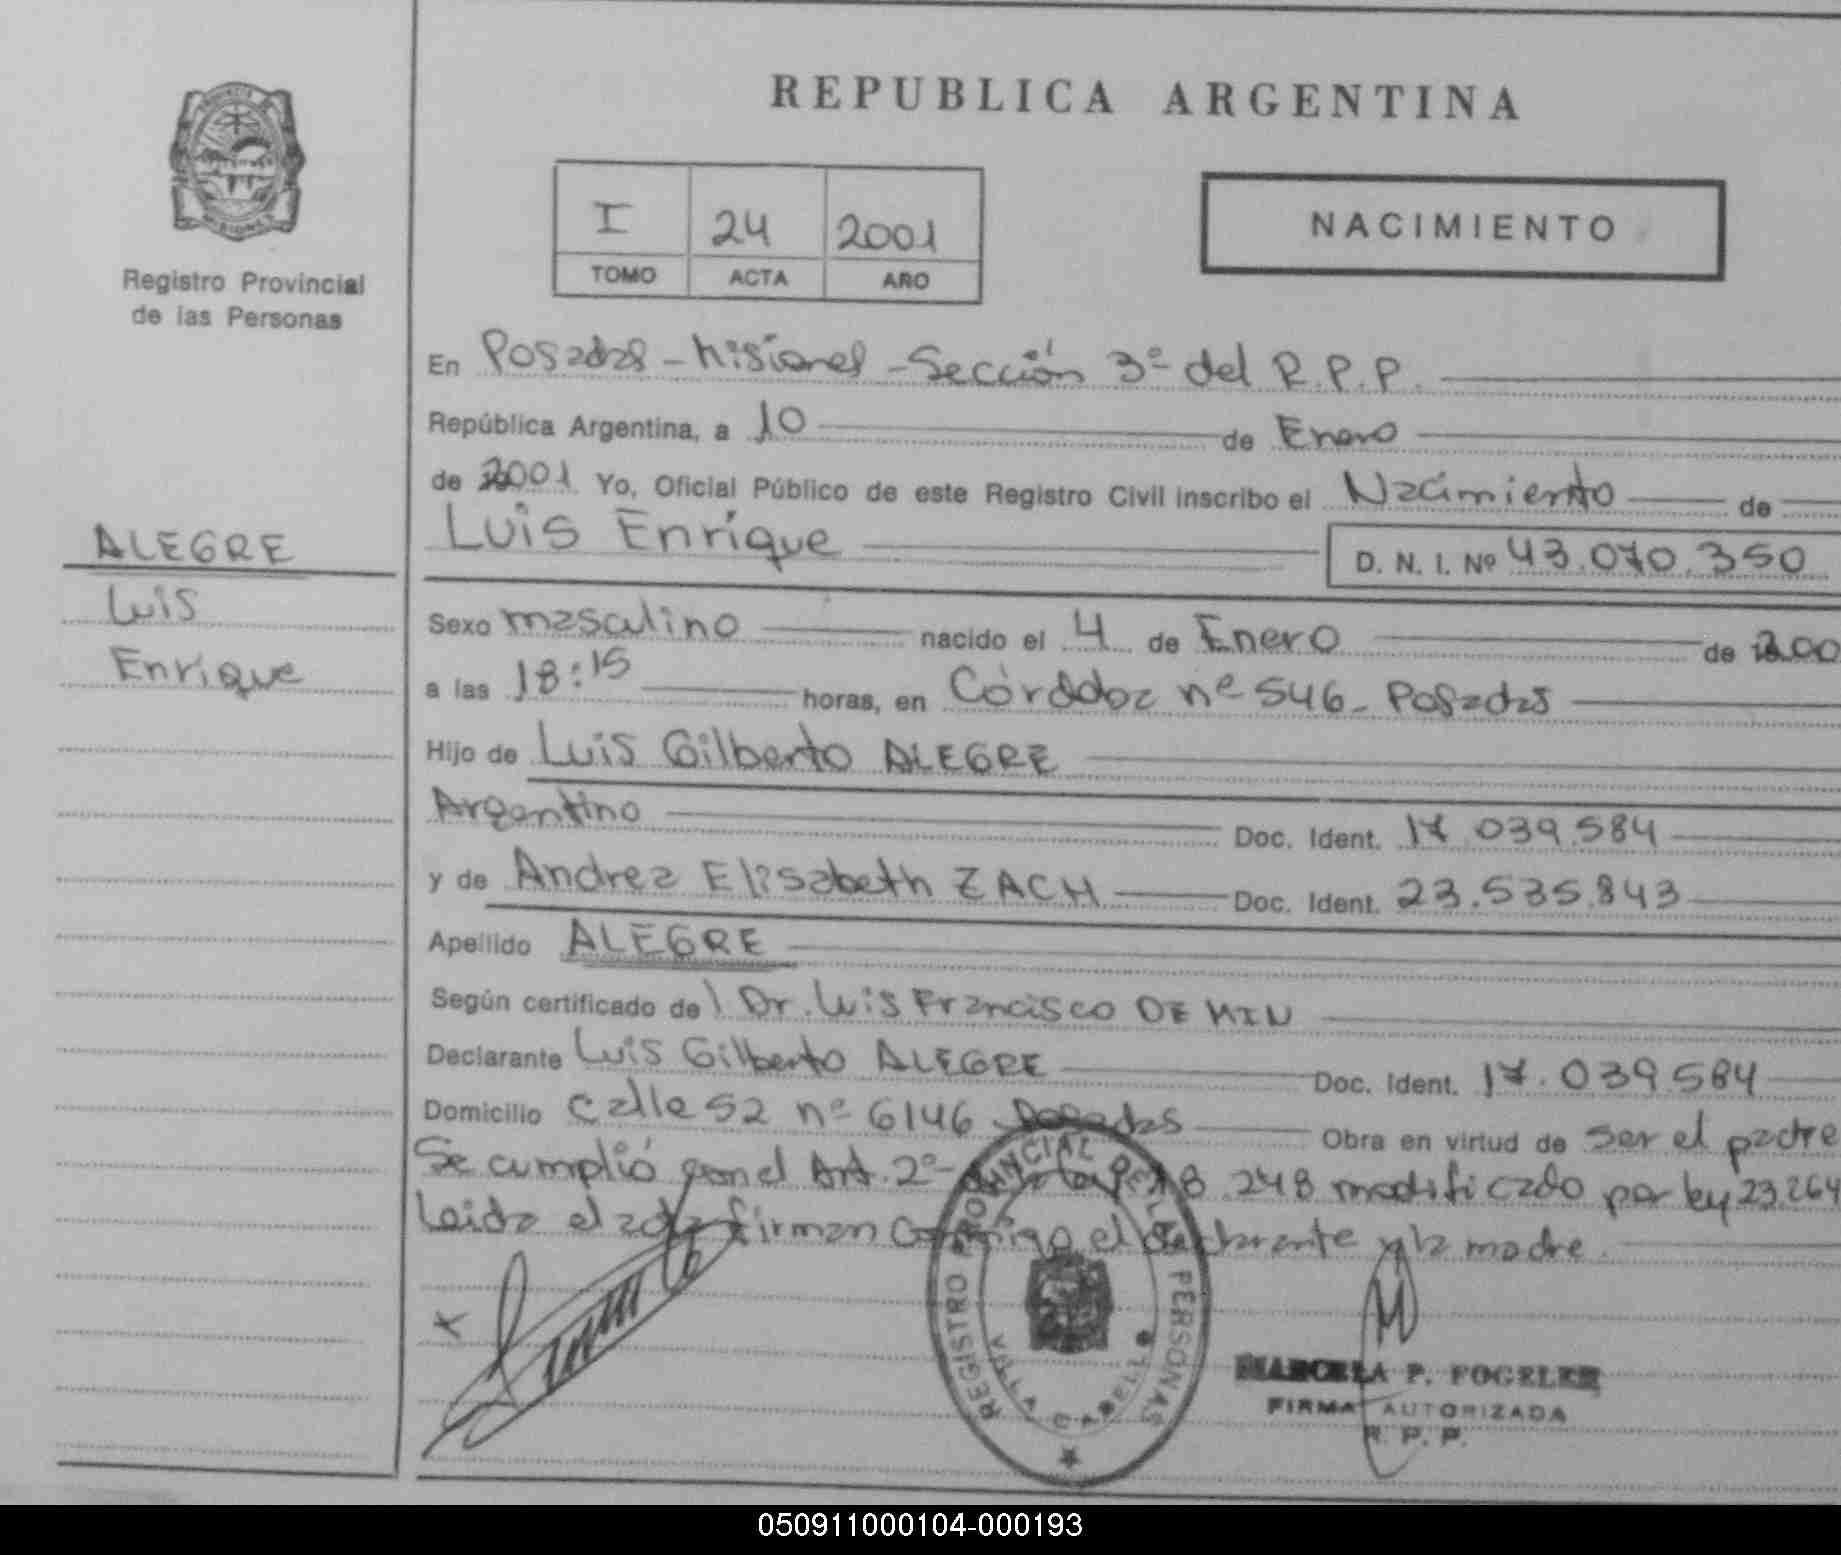 REPUBLICA ARGENTINA
PROVINCIA DE
MISIONES
Registro Provincial
de las Personas
I 24 2001
TOMO ACTA AÑO
NACIMIENTO
En Posadas - Misiones - Sección 3º del R.P.P.
República Argentina, a 10 de Enero
de 2001 Yo, Oficial Público de este Registro Civil inscribo el Nacimiento de
Luis Enrique D. N. I. Nº 43.070.350
ALEGRE
Luis
Enrique
Sexo masculino nacido el 4 de Enero de 200
a las 18:15 horas, en Córdoba nº 546 - Posadas
Hijo de Luis Gilberto ALEGRE
Argentino Doc. Ident. 17.039.584
y de Andrea Elisabeth ZACH Doc. Ident. 23.535.843
Apellido ALEGRE
Según certificado del Dr. Luis Francisco DE MIN
Declarante Luis Gilberto ALEGRE Doc. Ident. 17.039584
Domicilio Calle 52 nº 6146 Posadas Obra en virtud de ser el padre
Se cumplió con el Art. 2º Ley 18.248 modificado por ley 23.264
Leida el acta firman conmigo el declarante y la madre.
REGISTRO PROVINCIAL DE LAS PERSONAS
VILLA CABELLO
MARCELA P. FOGELER
FIRMA AUTORIZADA
R. P. P.
050911000104-000193